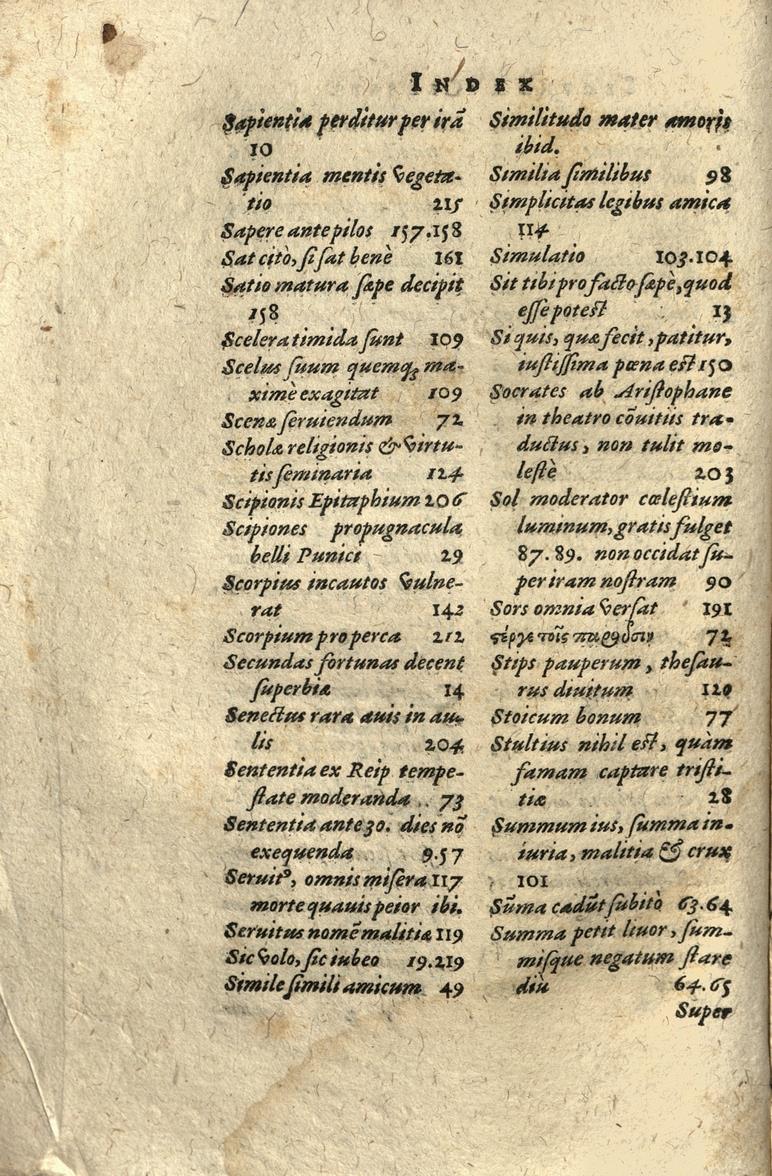 INDEX
Sapientia perditur per irã
10
Sapientia mentis vegeta-
tio 215
Sapere ante pilos 157.158
Sat citò, si sat benè 161
Satio matura sæpe decipit
158
Scelera timida sunt 109
Scelus suum quemq; ma-
ximè exagitat 109
Scenæ seruiendum 72
Scholæ religionis & virtu-
tis seminaria 124
Scipionis Epitaphium 206
Scipiones propugnacula
belli Punici 29
Scorpius incautos vulne-
rat 142
Scorpium pro perca 212
Secundas fortunas decent
superbiæ 14
Senectus rara auis in au-
lis 204
Sententia ex Reip tempe-
state moderanda 73
Sententia ante 30. dies nõ
exequenda 9.57
Seruitꝰ, omnis misera 117
morte quauis peior ibi.
Seruitus nomẽ malitiæ 119
Sic volo, sic iubeo 19.219
Simile simili amicum 49
Similitudo mater amoris
ibid.
Similia similibus 98
Simplicitas legibus amica
114
Simulatio 103.104
Sit tibi pro facto sæpè, quod
esse potest 13
Si quis, quæ fecit, patitur,
iustissima pœna est 150
Socrates ab Aristophane
in theatro cõuitiis tra-
ductus, non tulit mo-
lestè 203
Sol moderator cœlestium
luminum, gratis fulget
87.89. non occidat su-
per iram nostram 90
Sors omnia versat 191
στέργε τοῖς παροῦσιν 72
Stips pauperum, thesau-
rus diuitum 120
Stoicum bonum 77
Stultius nihil est, quàm
famam captare tristi-
tiæ 28
Summum ius, summa in-
iuria, malitia & crux
101
Sũma cadũt subitò 63.64
Summa petit liuor, sum-
misque negatum stare
diù 64.65
Super